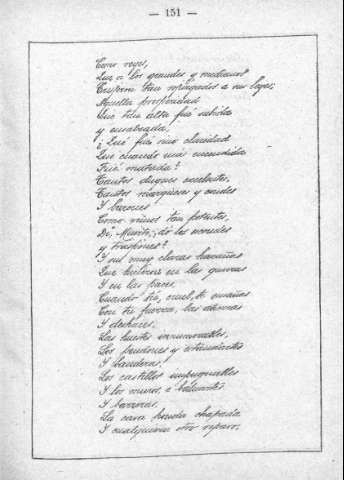 — 151 —
Como reyes,
Que a los grandes y medianos
Tuvieron tan sojuzgados a sus leyes,
Aquella prosperidad
Que tan alta fué subida
y ensalzada,
¿Qué fué sino claridad
Que cuando más encendida
Fué matada?
Tantos duques excelentes,
Tantos marqueses y condes
Y barones
Como vimos tan potentes,
Di, Muerte, ¿dó los escondes
y traspones?
Y sus muy claras hazañas
Que hicieron en las guerras
Y en las paces,
Cuando tú, cruel, te ensañas
Con tu fuerza, las atierras
Y deshaces.
Las huestes innumerables,
Los pendones y estandartes
Y banderas.
Los castillos impugnables
Y los muros, e baluartes
Y barreras,
La cava honda chapada
Y cualquiera otro reparo,